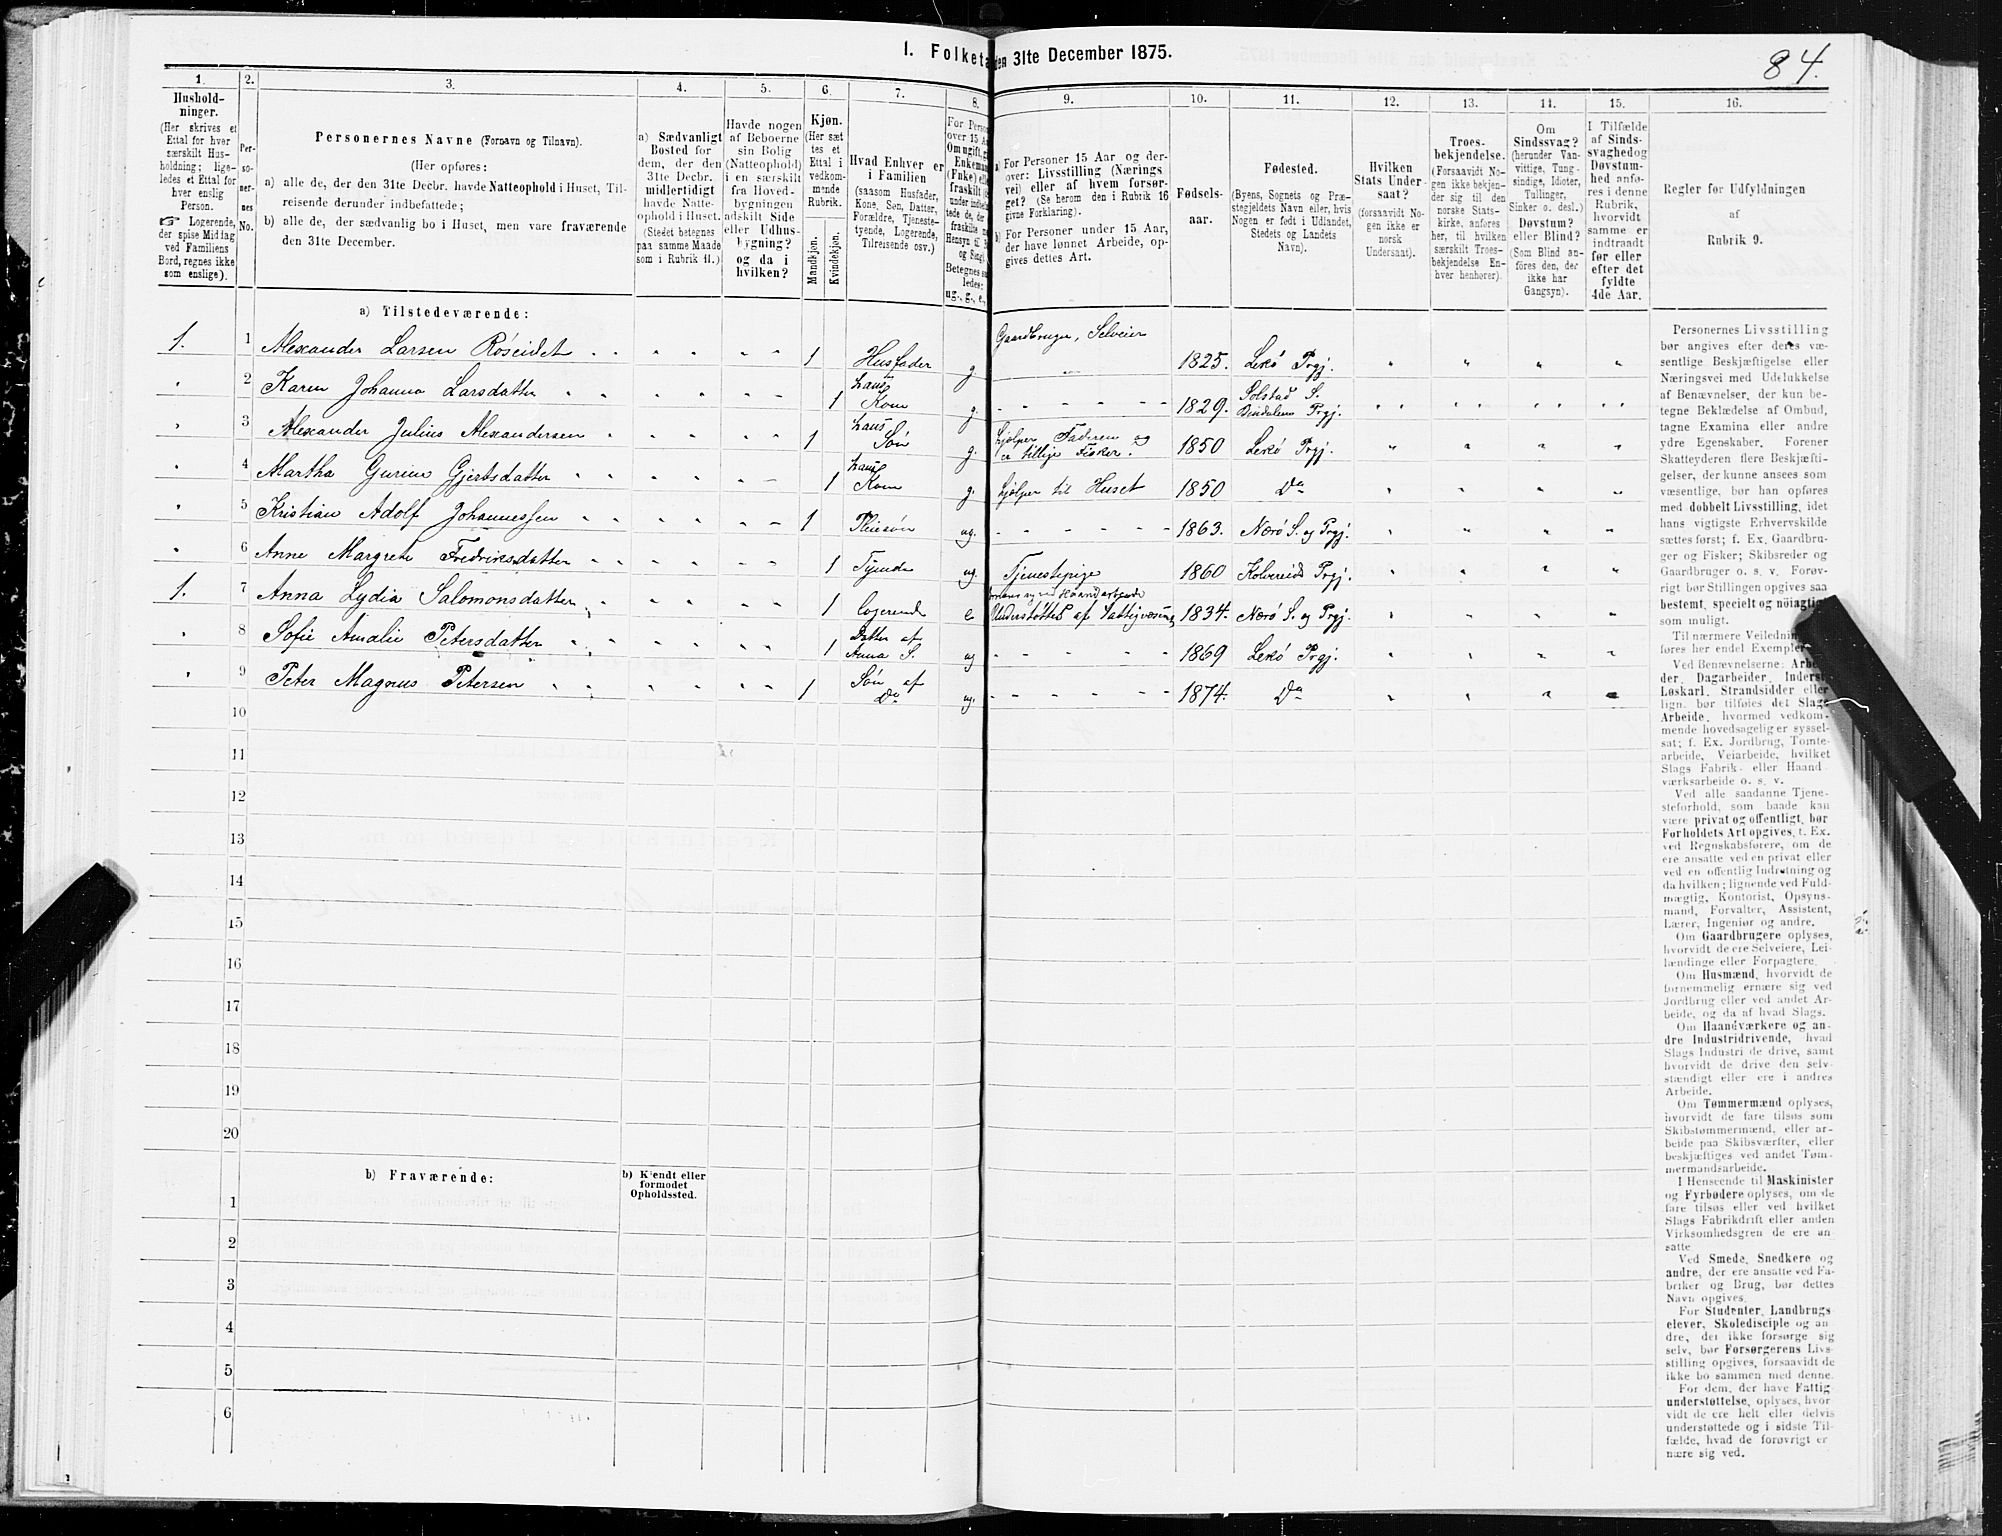 I. Folketa
den 31te December 1875.
84.
1.
2.
3.
4.
5.
6.
7.
8.
9.
10.
11.
12.
13.
14.
15.
16.
Hushold-
ninger.
(Her skrives et
Ettal for hver
særskilt Hus-
holdning; lige-
ledes et Ettal for
hver enslig
Person.
☞ Logerende,
der spise Middag
ved Familiens
Bord, regnes ikke
som enslige).
Per-
so-
ner-
nes
No.
Personernes Navne (Fornavn og Tilnavn).
(Her opføres:
a) alle de, der den 31te Decbr. havde Natteophold i Huset, Til-
reisende derunder indbefattede;
b) alle de, der sædvanlig bo i Huset, men vare fraværende
den 31te December.
a) Sædvanligt
Bosted for
dem, der den
31te Decbr.
midlertidigt
havde Natte-
ophold i Huset.
(Stedet betegnes
paa samme Maade
som i Rubrik 11.)
Havde nogen
af Beboerne
sin Bolig
(Natteophold)
i en særskilt
fra Hoved-
bygningen
adskilt Side
eller Udhus-
bygning?
og da i
hvilken?
Kjøn.
(Her sæt
tes et
Ettal i
vedkom-
mende
Rubrik.
Mandkjøn.
Kvindekjøn.
Hvad Enhver er
i Familien
(saasom Husfader,
Kone, Søn, Datter,
Forældre, Tjeneste-
tyende, Logerende,
Tilreisende osv.)
For Perso
over 15 Aa
Om ugift, g
Enkeman
(Enke) elle
fraskilt
under indbe
tede de, de
fraskilte
Hensyn til
og Seng).
Betegnes sa
ledes:
ug., g., e.,
a) For Personer 15 Aar og der-
over: Livsstilling (Nærings
vei) eller af hvem forsør-
get? (Se herom den i Rubrik 16
givne Forklaring).
b) For Personer under 15 Aar,
der have lønnet Arbeide, op-
gives dettes Art.
Fødsels-
aar.
Fødested.
(Byens, Sognets og Præ-
stegjeldets Navn eller, hvis
Nogen er født i Udlandet,
Stedets og Landets
Navn).
Hvilken
Stats Under
saat?
(forsaavidt No-
gen ikke er
norsk
Undersaat).
Troes-
bekjendelse.
(Forsaavidt No
gen ikke bekjen-
der sig til den
norske Stats-
kirke, anføres
her, til hvilken
særskilt Troes-
bekjendelse En-
hver henhører).
Om
Sindssvag?
(herunder Van-
vittige, Tung-
sindige, Idioter,
Tullinger,
Sinker o. desl.)
Døvstum?
eller Blind?
(Som Blind an-
føres den, der
ikke har
Gangsyn).
I Tilfælde
af Sinds-
svaghed og
Døvstum-
hed anfø-
res i denne
Rubrik,
hvorvidt
samme er
indtraadt
før eller
efter det
fyldte
4de Aar.
Regler for Udfyldningen
af
Rubrik 9.
a) Tilstedeværende:
1. 1 Alexander Larsen Röseidet " " " " " 1 Husfader g. Gaardbruger, Selveier " 1825. Lekö Prgj. " " " "
" 2 Karen Johanna Larsdatter " " " " " 1 hans Kone g. " " " " " 1829. Solstad S. Bindalens Prgj. " " " "
" 3 Alexander Julius Alexandersen " " " " 1 hans Sön g. hjælper Faderen og er tillige Fisker. 1850 Lekö Prgj. " " " "
" 4 Martha Gurine Gjertsdatter " " " " " 1 hans Kone g. hjælper til Huset 1850 Do " " " "
" 5 Kristian Adolf Johannessen " " " " " 1 Pleiesön ug. " " " " " 1863. Nærö S. og Prgj. " " " "
" 6 Anne Margrete Fredriksdatter " " " " 1 Tyende ug. Tjenestepige 1860 Kolvereids Prgj. " " " "
1. 7 Anna Lydia Salomonsdatter " " " " 1 logerende e. Understöttes af Fattigvæsenet 1834. Nærö S. og Prgj. " " " "
" 8 Sofie Amalie Petersdatter " " " " " 1 Datter af Anna S. ug " " " " " 1869 Lekö Prgj. " " " "
" 9 Peter Magnus Petersen " " " " " " 1 Sön af Do ug. " " " " " 1874. Do " " " "
10
11
12
13
14
15
16
17
18
19
20
b) Fraværende:
b) Kjendt eller
formodet
Opholdssted.
1
2
3
4
5
6
Personernes Livsstilling
bør angives efter deres væ-
sentlige Beskjæftigelse eller
Næringsvei med Udelukkelse
af Benævnelser, der kun be-
tegne Beklædelse af Ombud,
tagne Examina eller andre
ydre Egenskaber. Forener
Skatteyderen flere Beskjæfti-
gelser, der kunne ansees som
væsentlige, bør han opføres
med dobbelt Livsstilling, idet
hans vigtigste Erhvervskilde
sættes først; f. Ex. Gaardbru-
ger og Fisker; Skibsreder og
Gaardbruger o. s. v. Forøv-
rigt bør Stillingen opgives saa
bestemt, specielt og nøiagtig
som muligt.
Til nærmere Veiledning
føres her endel Exempler:
Ved Benævnelserne: Arbei
der, Dagarbeider, Inderst
Løskarl, Strandsidder eller
lign. bør tilføies det Slags
Arbeide, hvormed vedkom-
mende hovedsagelig er syssel-
sat; f. Ex. Jordbrug, Tomte-
arbeide, Veiarbeide, hvilket
Slags Fabrik- eller Haand
værksarbeide o. s. v.
Ved alle saadanne Tjene-
steforhold, som baade kan
være privat og offentligt, bør
Forholdets Art opgives, t. Ex.
ved Regnskabsførere, om de
ere ansatte ved en privat eller
ved en offentlig Indretning og
da hvilken; lignende ved Fuld-
mægtig, Kontorist, Opsyns-
mand, Forvalter, Assistent,
Lærer, Ingeniør og andre.
Om Gaardbrugere oplyses,
hvorvidt de ere Selveiere, Lei-
lændinge eller Forpagtere.
Om Husmænd, hvorvidt de
fornemmelig ernære sig ved
Jordbrug eller ved andet Ar-
beide, og da af hvad Slags.
Om Haandværkere og an-
dre Industridrivende, hvad
Slags Industri de drive, samt
hvorvidt de drive den selv-
stændigt eller ere i andres
Arbeide.
Om Tømmermænd oplyses,
hvorvidt de fare tilsøs som
Skibstømmermænd, eller ar-
beide paa Skibsværfter, eller
beskjæftiges ved andet Tøm-
mermandsarbeide.
I Henseende til Maskinister
og Fyrbødere oplyses, om de
fare tilsøs eller ved hvilket
Slags Fabrikdrift eller anden
Virksomhedsgren de ere an-
satte.
Ved Smede, Snedkere og
andre, der ere ansatte ved Fa-
briker og Brug, bør dettes
Navn opgives.
For Studenter, Landbrugs-
elever, Skoledisciple og an-
dre, der ikke forsørge sig
selv, bør Forsørgerens Livs-
stilling opgives, forsaavidt de
ikke bo sammen med denne.
For dem, der have Fattig-
understøttelse, oplyses, hvor-
vidt de ere helt eller delvis
understøttede og i sidste Til-
fælde, hvad de forøvrigt er
nære sig ved.